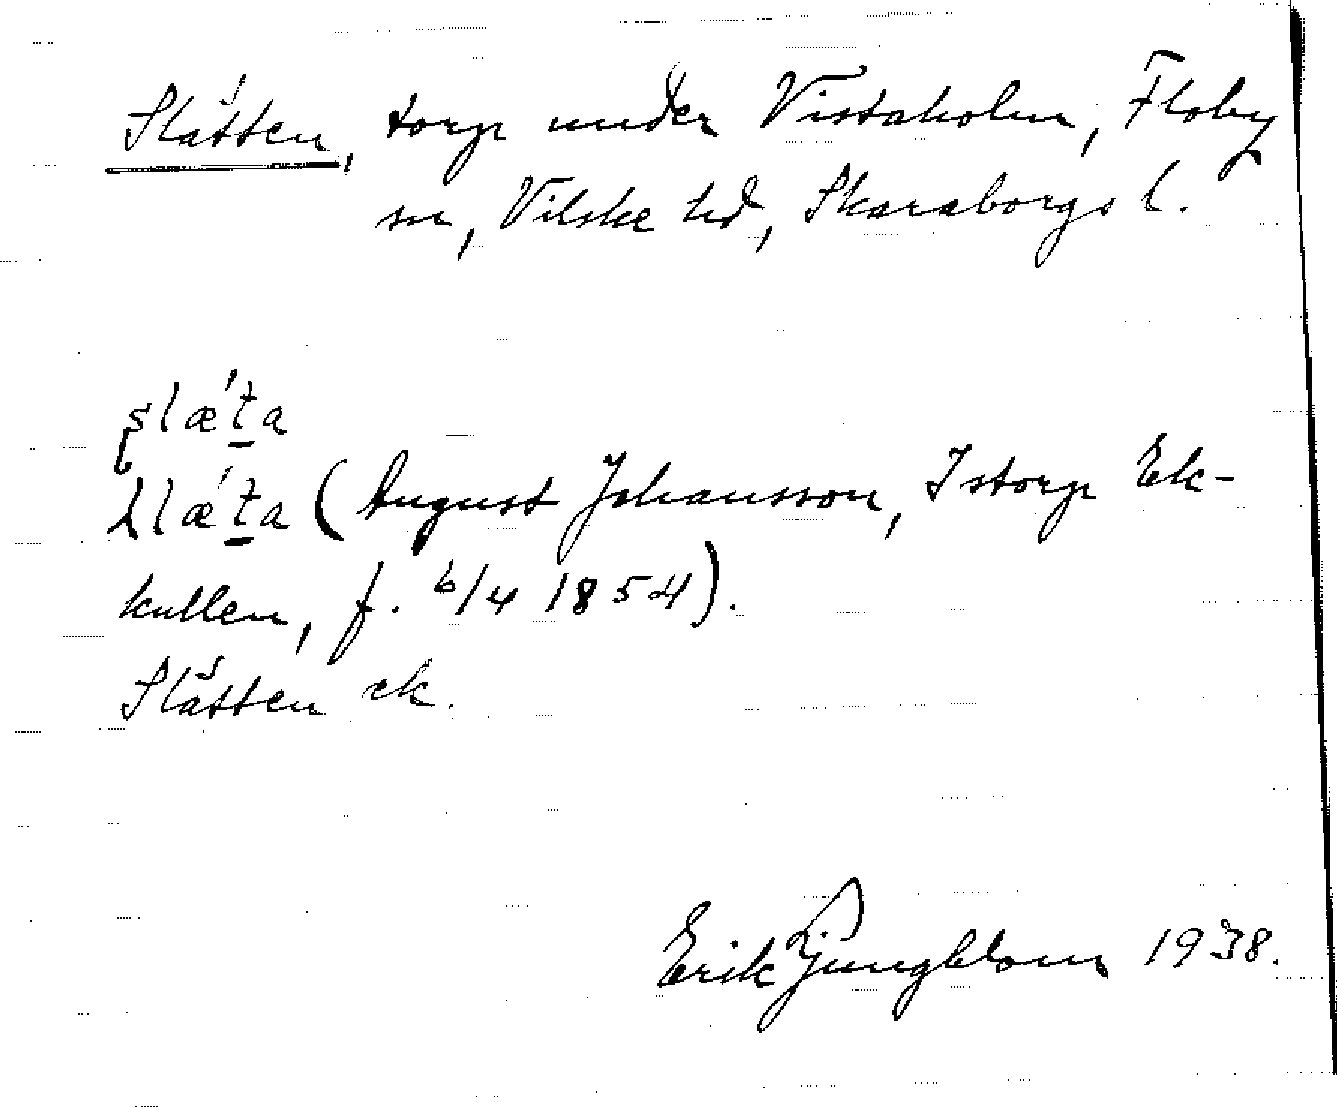 Slätten, torp under Vistaholm, Floby
sn, Vilske hd, Skaraborgs l.
slæ't̲a
llæ't̲a (August Johansson, Istorp Ek-
kullen, f. 6/4 1854).
Slätten ek.
Erik Ljungblom 1938.